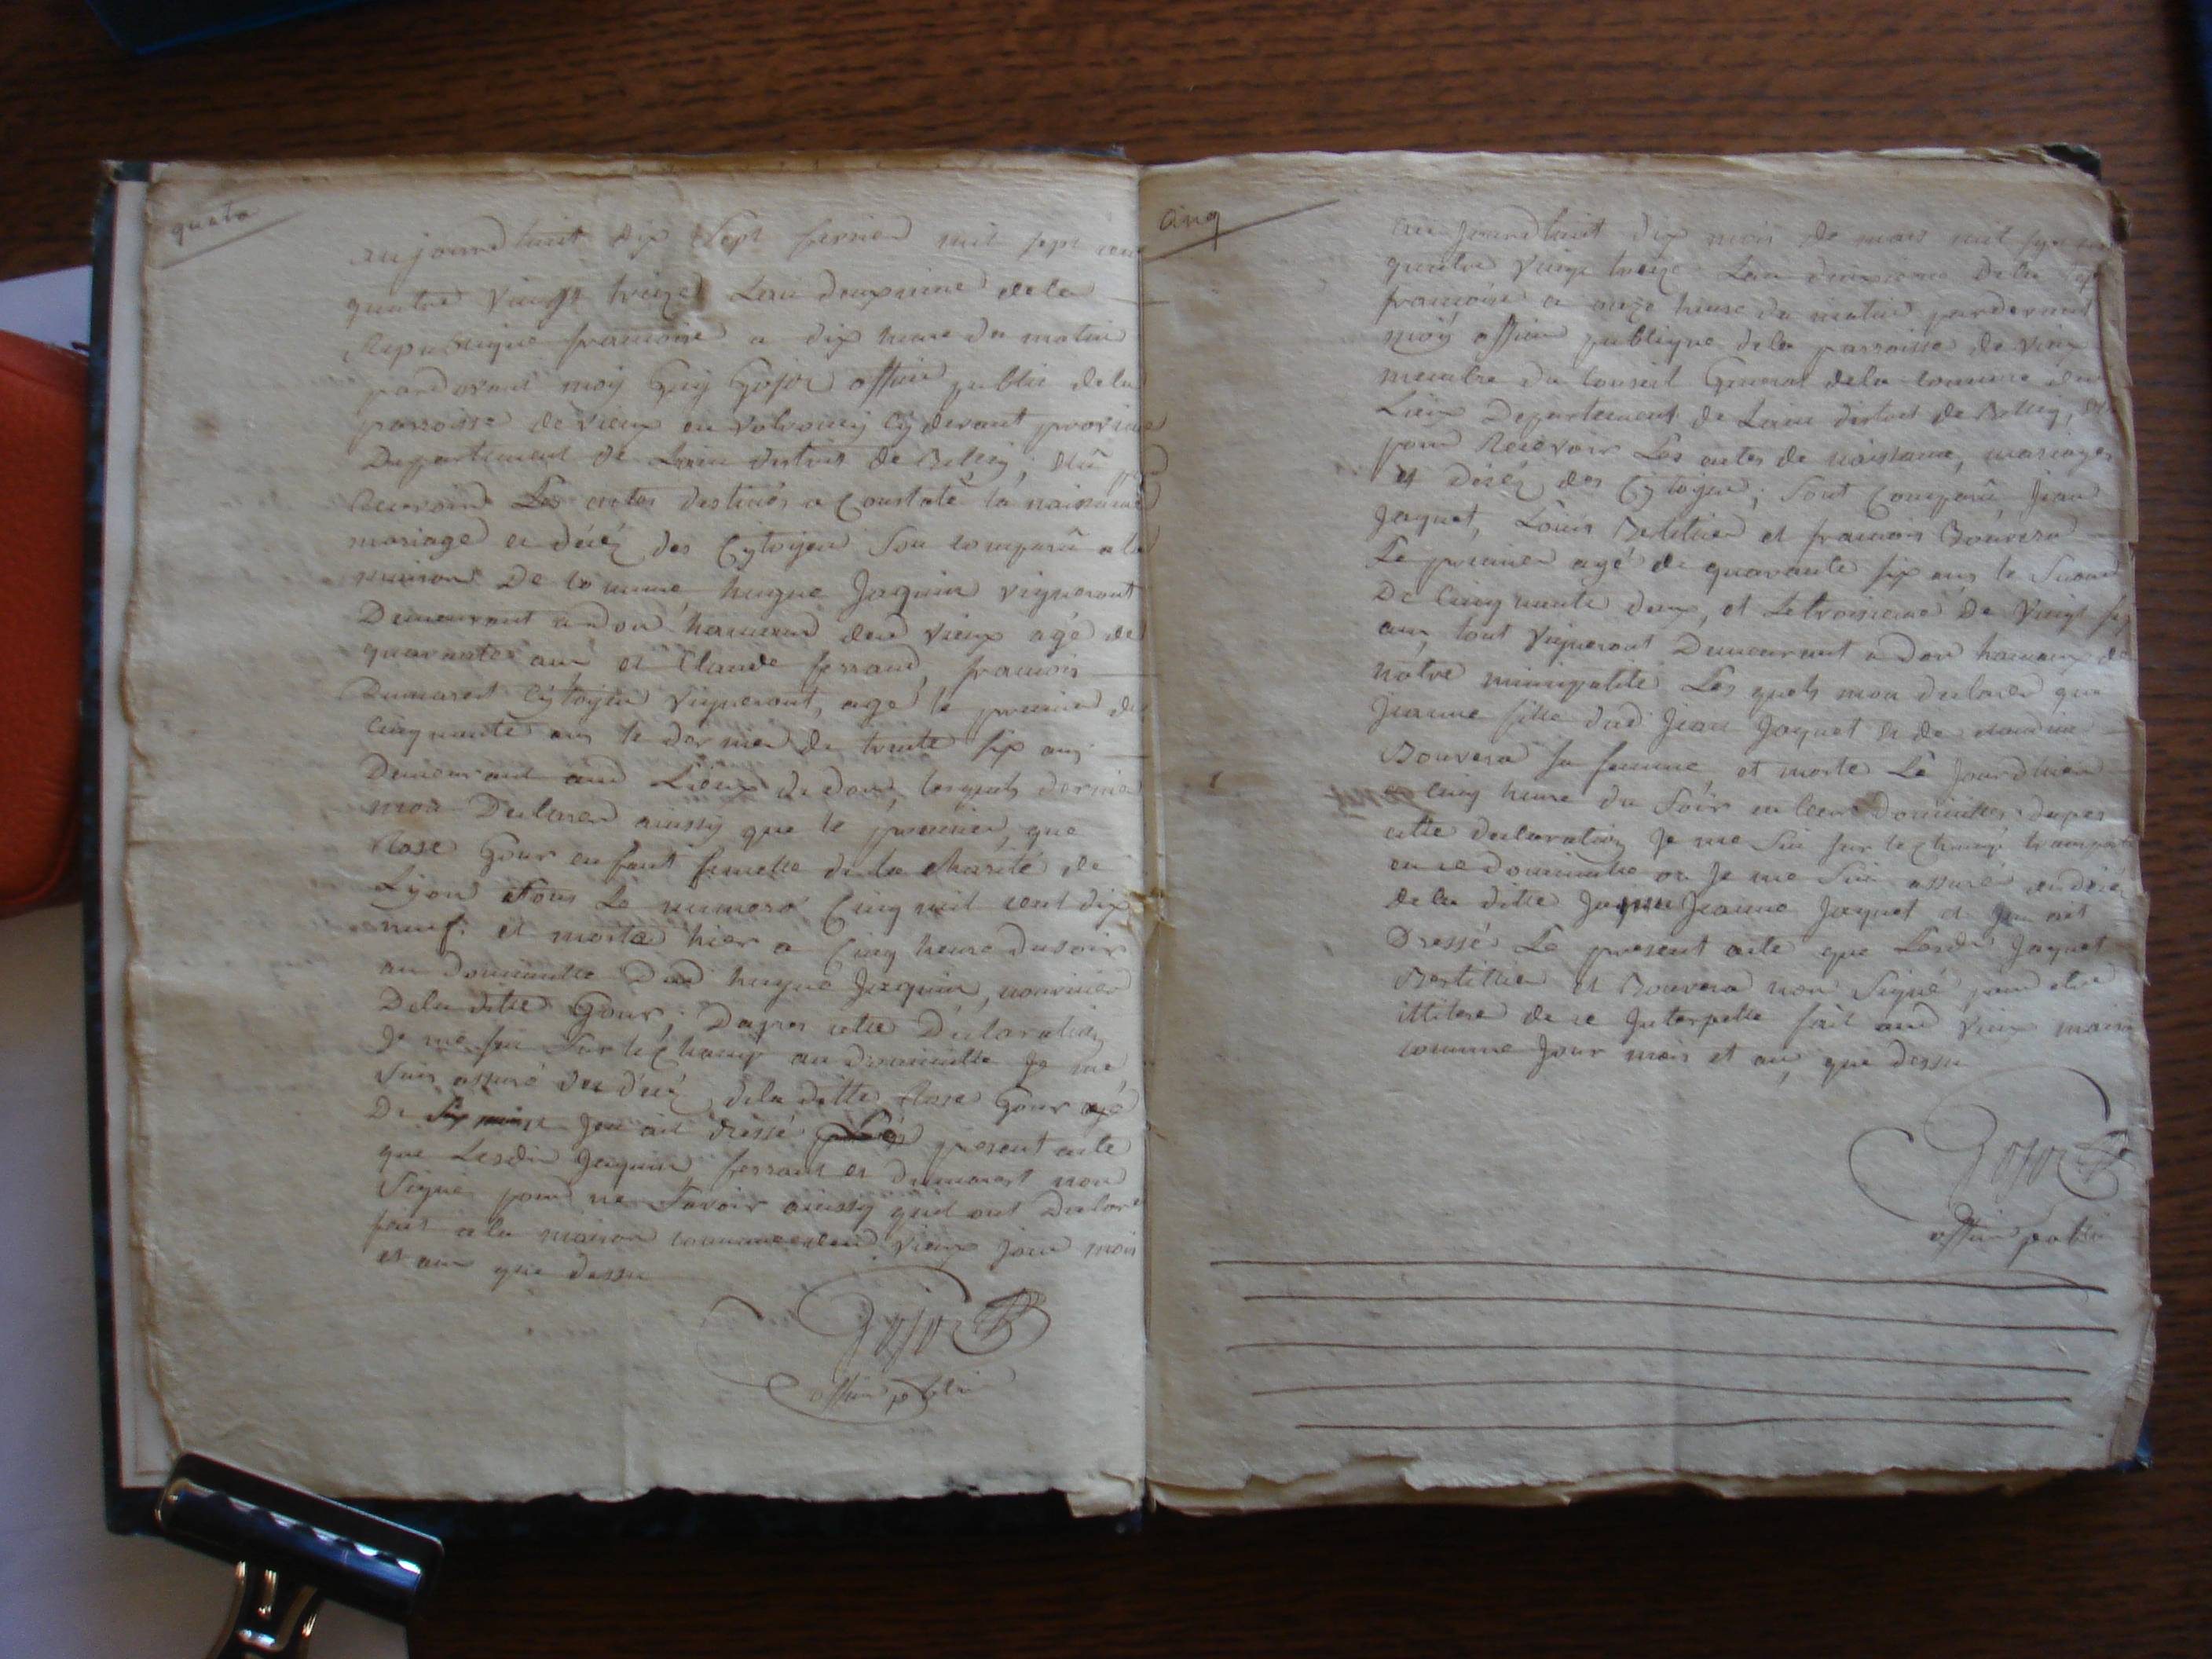 quatre
aujourdhuit dix sept fevrier mil sept cent
quatre vingt treize Lan deuxieme de la
Republique francoise a dix heure du matin
pardevant moy Guy Gojoz officier public dela
parroisse de vieux en valromey cy devant province
Departement de Lain district de Belley, élû
Recevoir Les actes destinés a Constaté la naissance
mariage et décéz des Cytoyen son comparû a la
maison De commune hugue Jaquin vigneront
Demeurant a don hameau dud vieux agé de
quarante ans et Claude ferrand, francois
Dumarest Cytoyen vigneront, agé le premier de
cinquante ans le dernier de trente six ans
Demeurant aud Lieux de don, lesquels dernier
mon Declarer aussy que le premier, que
Rose Gour enfant femelle de la charité de
Lyon sous Le numero Cinq mil cent dix
neuf. et morte hier a Cinq heure du soir
au domicille Dud hugue Jaquin, nourricier
Dela ditte Gour; Dapres cette Déclaration
Je me sui sur le Champ au domicille Je me
suis assuré du décéz dela ditte Rose Gour agé
De Jen ait dressé Le present acte
que Lesdis Jaquin ferrand et dumarest non
Signé pour ne Savoir aussy quil ont Declaré
fait a la maison commune dud vieux jour mois
et an que dessu
Gojoz
officier public
Cinq
aujourdhuit dix mois de mars mil sept
quatre vingt treize Lan deuxieme dela
francoise a onze heure du matin pardevant
moy officier publique dela parroisse de vieux
membre du Conseil General dela commune dud
Lieux Departement de Lain district de Belley,
pour Recevoir Les actes de naissance, mariages
et Décéz des Cytoyen; sont Comparû Jean
Jaquet, Loüis Bertillier et francois Bouvera
Le premier agé de quarante six ans le second
De Cinquante deux, et Le troisieme De vingt
ans, tout vigneront Demeurant a don hameaux de
notre municipalité Les quels mon declarer que
Jeanne fille dud Jean Jaquet et de
Bouvera sa femme, et morte Le Jourdhier
a cinq heure du Soir en leur Domicilles dapres
cette declaration Je me Sui sur le Champ transporté
en ce domicille ou Je me Suis assuré du décéz
de la ditte Jeanne Jaquet et Jen ait
Dressé Le present acte que Lesdis Jaquet
Bertillier et Bouvera non Signé pour etre
illitere de ce Interpelle fait aud vieux maison
commune Jour mois et an, que dessu
Gojoz
officier public